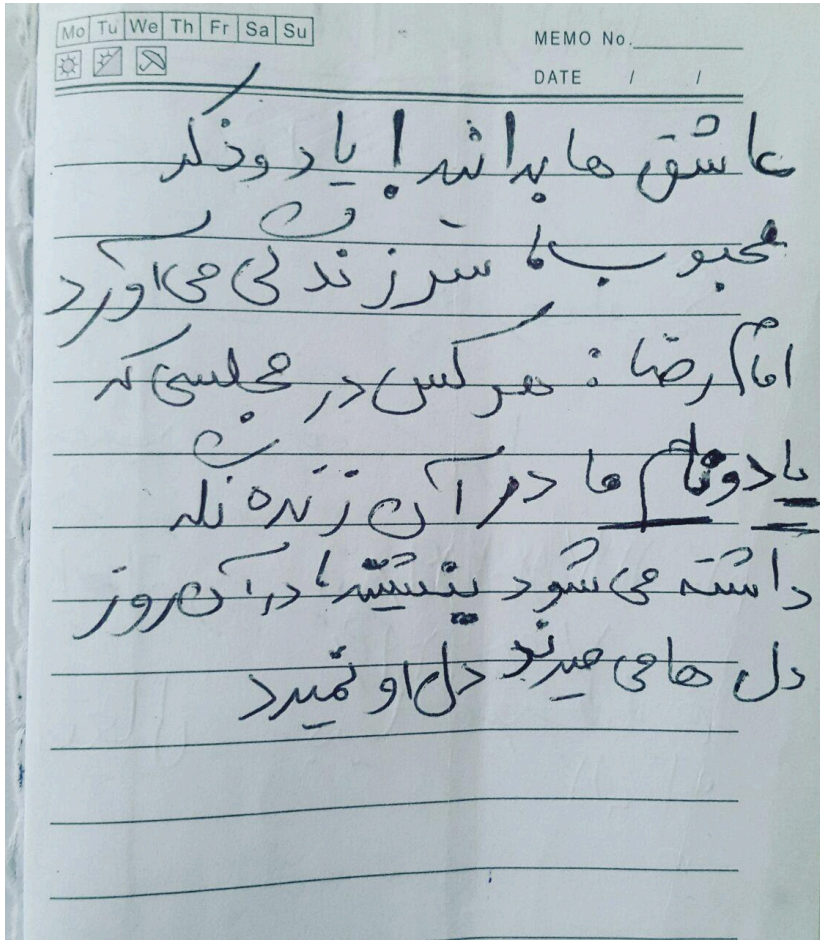 Mo Tu We Th Fr Sa Su
MEMO No.
DATE / /
عاشق ها بدانید! یاد و ذکر
محبوب، سرزندگی می آورد
امام رضا: هر کس در مجلسی که
یاد و نام ما در آن زنده نگه
داشته می شود بنشیند، در آن روز
دل ها می میرند دل او نمیرد